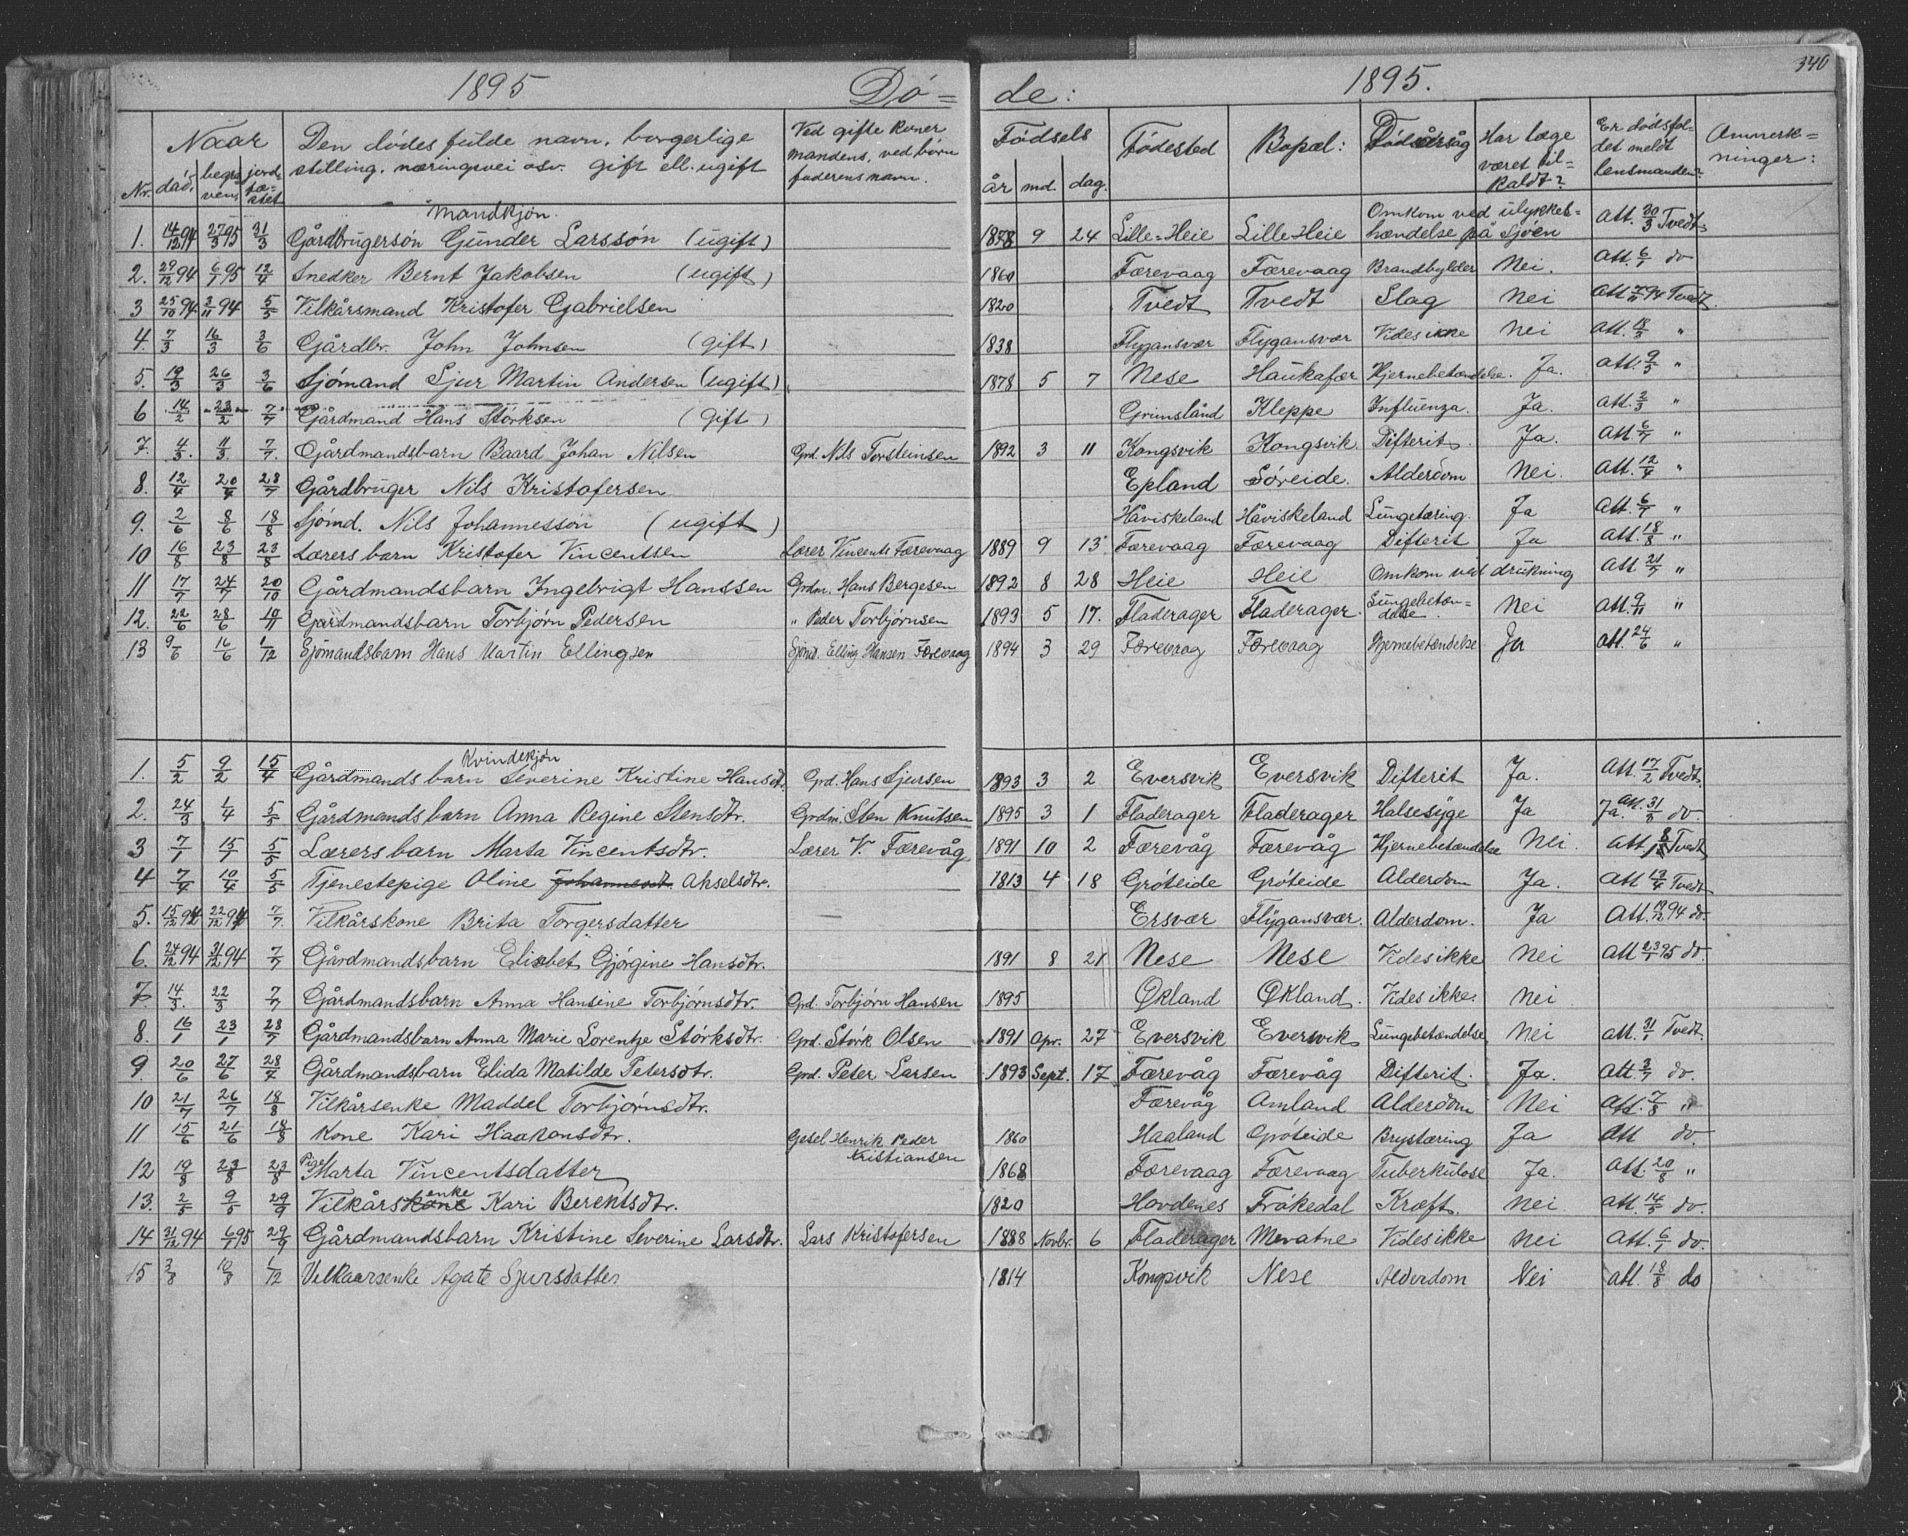 340
1895 Dö= de: 1895.
Nr. Naar död, begraven, jord fæ=stet Den dödes fulde navn, borgerlige stilling, næringsvei osv. gift ell. ugift Ved gifte koner mandens, ved børn faderens navn. Fødsels år md. dag. Fødested Bopæl: Dødsårsåg Har læge været til=kaldt? Er dödsfal=det meldt lensmanden? Anmerk=ninger:
Mandkjøn.
1. 14/12 94 27/3 95 31/3 Gårdbrugersön Gunder Larssön (ugift) 1878 9 24 Lille=Heie Lille Heie Omkom ved ulykkes=hændelse på Sjöen att. 30/3 Tvedt
2. 29/12 94 6/1 95 12/4 Snedker Bernt Jakobsen (ugift) 1860 Færevaag Færevaag Brandbylder Nei. att. 6/1 do
3 25/10 94 2/11 94 5/5 Vilkårsmand Kristofer Gabrielsen 1820 Tvedt Tvedt Slag Nei att 7/11 94 Tvedt
4. 7/3 16/3 3/6 Gårdbr. John Johnsen (gift) 1838 Flygansvær Flygansvær Vides ikke Nei att. 18/3 "
5. 19/3 26/3 3/6 Sjömand Sjur Martin Andersen (ugift) 1878 5 7 Nese Haukafær Hjernebetændelse. Ja. att. 9/3 "
6 14/2 23/2 7/7 Gårdmand Hans Størksen (gift) Grimsland Kleppe Influenza. Ja. att. 2/3 "
7. 4/3. 11/3 7/7 Gårdmandsbarn Baard Johan Nilsen Grd. Nils Torsteinsen 1892 3 11 Kongsvik Kongsvik Difterit. Ja. att 6/7 "
8. 12/4 20/4 28/7 Gårdbruger Nils Kristofersen Epland Söreide. Alderdom Nei. att. 12/4 "
9. 2/6 8/6 18/8 Sjömd. Nils Johannessön (ugift) Håviskeland Håviskeland Lungetæring. Ja att. 6/7 "
10 16/8 23/8 23/8 Lærers barn Kristofer Vincentsen Lærer Vincents Færevaag 1889 9 13 Færevaag Færevaag Difterit Ja att. 18/8 "
11 17/7 24/7 20/10 Gårdmandsbarn Ingebrigt Hanssen Grdm. Hans Bergesen 1892 8 28 Heie Heie Omkom ved drukning att 21/7 "
12. 22/6 28/6 10/11 Gardmandsbarn Torbjørn Pedersen " Peder Torbjørnsen 1893 5 17. Fladerager Fladerager Lungebetæn=delse. Nei att. 9/11 "
13 9/6 16/6 1/12 Sjömandsbarn Hans Martin Ellingsen Sjömd. Elling Hansen Færevaag 1894 3 29 Færevaag Færevaag Hjernebetændelse Ja att. 24/6 "
Kvindekjøn
1. 5/2 9/2 15/4 Gårdmands barn Severine Kristine Hansdt. Grd. Hans Sjursen 1893 3 2 Eversvik Eversvik Difterit Ja. att. 17/2 Tvedt
2. 24/3 1/4 5/5 Gårdmands barn Anna Regine Stensdtr. Grdm. Sten Knutsen 1895 3 1 Fladerager Fladerager Halsesyge Ja Ja. att. 31/3 do.
3 7/1 15/1 5/5 Lærersbarn Marta Vincentsdtr. Lærer V. Færevåg 1891 10 2 Færevåg Færevåg Hjernebetændelse Nei. att Tvedt
4 7/4 10/4 5/5 Tjenestepige Oline Johannesdt. Akselsdtr. 1813 4 18 Gröteide Gröteide Alderdom Ja. att. 13/4 Tvedt
5. 15/12 94 22/12 94 7/7 Vilkårskone Brita Torgersdatter Ersvær Flygansvær. Alderdom. Ja att. 19/12 94 do.
6. 24/12 94 31/12 94 7/7 Gårdmandsbarn Elisbet Gjørgine Hansdtr. 1891 8 21 Nese Nese Vides ikke Nei att 23/1 95 do.
7. 14/3. 22/3 7/7 Gårdmandsbarn Anna Hansine Torbjørnsdtr. Grd. Torbjørn Hansen 1895 Økland Økland. Vides ikke. Nei
8. 16/1 23/1 28/7 Gårdmandsbarn Anna Marie Lorentze Störksdtr. Grd. Störk Olsen 1891 Apr. 27 Eversvik Eversvik Lungebetændelse Nei att. 31/1 Tvedt.
9. 20/6 27/6 28/7 Gårdmandsbarn Elida Matilde Petersdtr. Grd. Peter Larsen 1893 Sept. 17 Færevåg Færevåg Difterit. Ja. att. 3/7 do.
10 21/7 26/7 18/8 Vilkårsenke Maddel Torbjørnsdtr. Færevåg Amland Alderdom Nei att. 7/8 "
11 15/6 21/6 18/8 Kone Kari Haakonsdtr. Gesel Henrik Peder Kristiansen 1860 Haaland Gröteide Brystæring Ja att do.
12 19/8 23/8 23/8 Pige Marta Vincentsdatter 1868 Færevaag Færevaag Tuberkulose Ja. att. 20/8 "
13. 2/5 9/5 29/9 Vilkårskone enke Kari Berentsdtr. 1820 Hovdenes Fröikedal Kræft. Nei att. 14/5 do.
14 31/12 94 6/1 95 29/9 Gårdmandsbarn Kristine Severine Larsdtr. Lars Kristofersen 1888 Novbr. 6 Fladerager Mevatne Vides ikke Nei att. 6/1 do.
15 3/8 10/8 1/12 Vilkaarsenke Agate Sjursdatter 1814 Kongsvik Nese Alderdom Nei att. 18/8 do